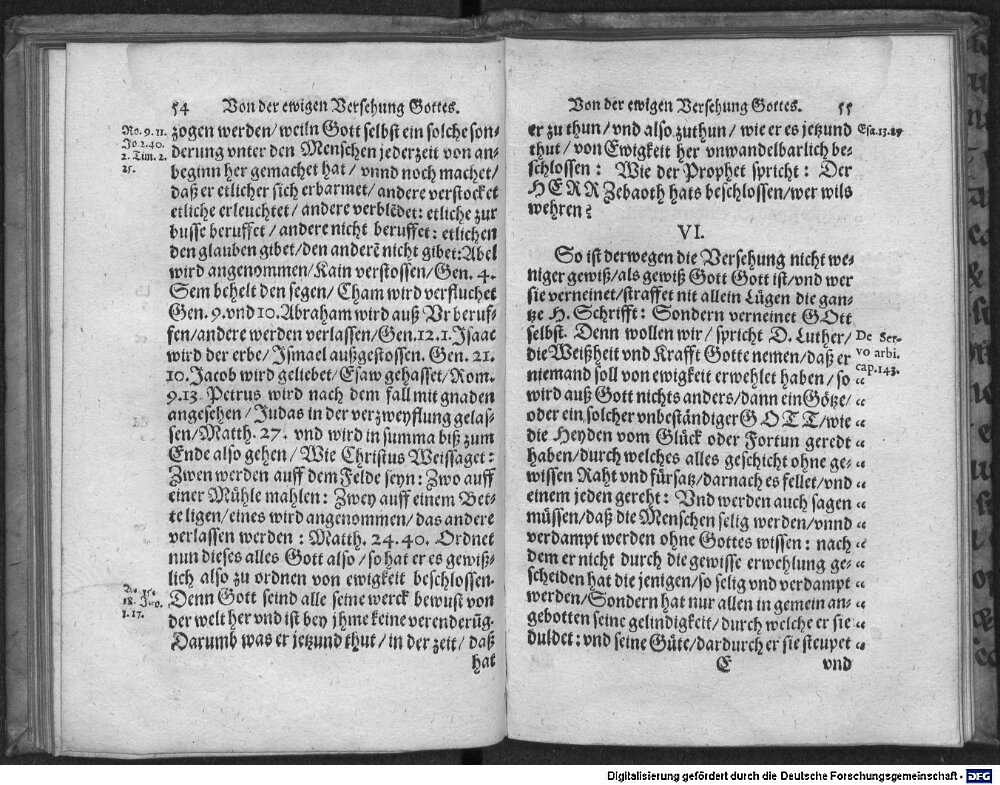 54 Von der ewigen Versehung Gottes.
Ro. 9. 11.
Jo. 2. 40.
2. Tim. 2.
25.
zogen werden/ weiln Gott selbst ein solche son-
derung vnter den Menschen jederzeit von an-
beginn her gemachet hat/ vnnd noch machet/
daß er etlicher sich erbarmet/ andere verstocket
etliche erleuchtet/ andere verblēdet: etliche zur
busse beruffet/ andere nicht beruffet: etlichen
den glauben gibet/ den anderē nicht gibet: Abel
wird angenommen/ Kain verstossen/ Gen. 4.
Sem behelt den segen/ Cham wird verfluchet
Gen. 9. vnd 10. Abraham wird auß Vr beruf-
fen/ andere werden verlassen/ Gen. 12. 1. Isaac
wird der erbe/ Ismael außgestossen. Gen. 21.
10. Jacob wird geliebet/ Esaw gehasset/ Rom.
9. 13 Petrus wird nach dem fall mit gnaden
angesehen/ Judas in der verzweyflung gelas-
sen/ Matth. 27. vnd wird in summa biß zum
Ende also gehen/ Wie Christus Weissaget:
Zwen werden auff dem Felde seyn: Zwo auff
einer Mühle mahlen: Zwey auff einem Bet-
te ligen/ eines wird angenommen/ das andere
verlassen werden: Matth. 24. 40. Ordnet
nun dieses alles Gott also/ so hat er es gewiß-
lich also zu ordnen von ewigkeit beschlossen.
18. Jac.
1. 17.
Denn Gott seind alle seine werck bewust von
der welt her vnd ist bey jhme keine verenderūg.
Darumb was er jetzund thut/ in der zeit/ daß
hat
Von der ewigen Versehung Gottes. 55
er zu thun/ vnd also zuthun/ wie er es jetzund
Esa. 13. 27
thut/ von Ewigkeit her vnwandelbarlich be-
schlossen: Wie der Prophet spricht: Der
HERR Zebaoth hats beschlossen/ wer wils
wehren?
VI.
So ist derwegen die Versehung nicht we-
niger gewiß/ als gewiß Gott Gott ist/ vnd wer
sie verneinet/ straffet nit allein Lügen die gan-
tze H. Schrifft: Sondern verneinet GOtt
selbst. Denn wollen wir/ spricht D. Luther/
De Ser-
vo arbi.
cap. 143.
die Weißheit vnd Krafft Gotte nemen/ daß er
niemand soll von ewigkeit erwehlet haben/ so „
wird auß Gott nichts anders/ dann ein Götze/ „
oder ein solcher vnbeständiger GOTT/ wie „
die Heyden vom Glück oder Fortun geredt „
haben/ durch welches alles geschicht ohne ge- „
wissen Raht vnd fürsatz/ darnach es fellet/ vnd „
einem jeden gereht: Vnd werden auch sagen „
müssen/ daß die Menschen selig werden/ vnnd „
verdampt werden ohne Gottes wissen: nach „
dem er nicht durch die gewisse erwehlung ge- „
scheiden hat die jenigen/ so selig vnd verdampt „
werden/ Sondern hat nur allen in gemein an- „
gebotten seine gelindigkeit/ durch welche er sie „
duldet: vnd seine Güte/ dardurch er sie steupet „
E vnd
Digitalisierung gefördert durch die Deutsche Forschungsgemeinschaft - DFG